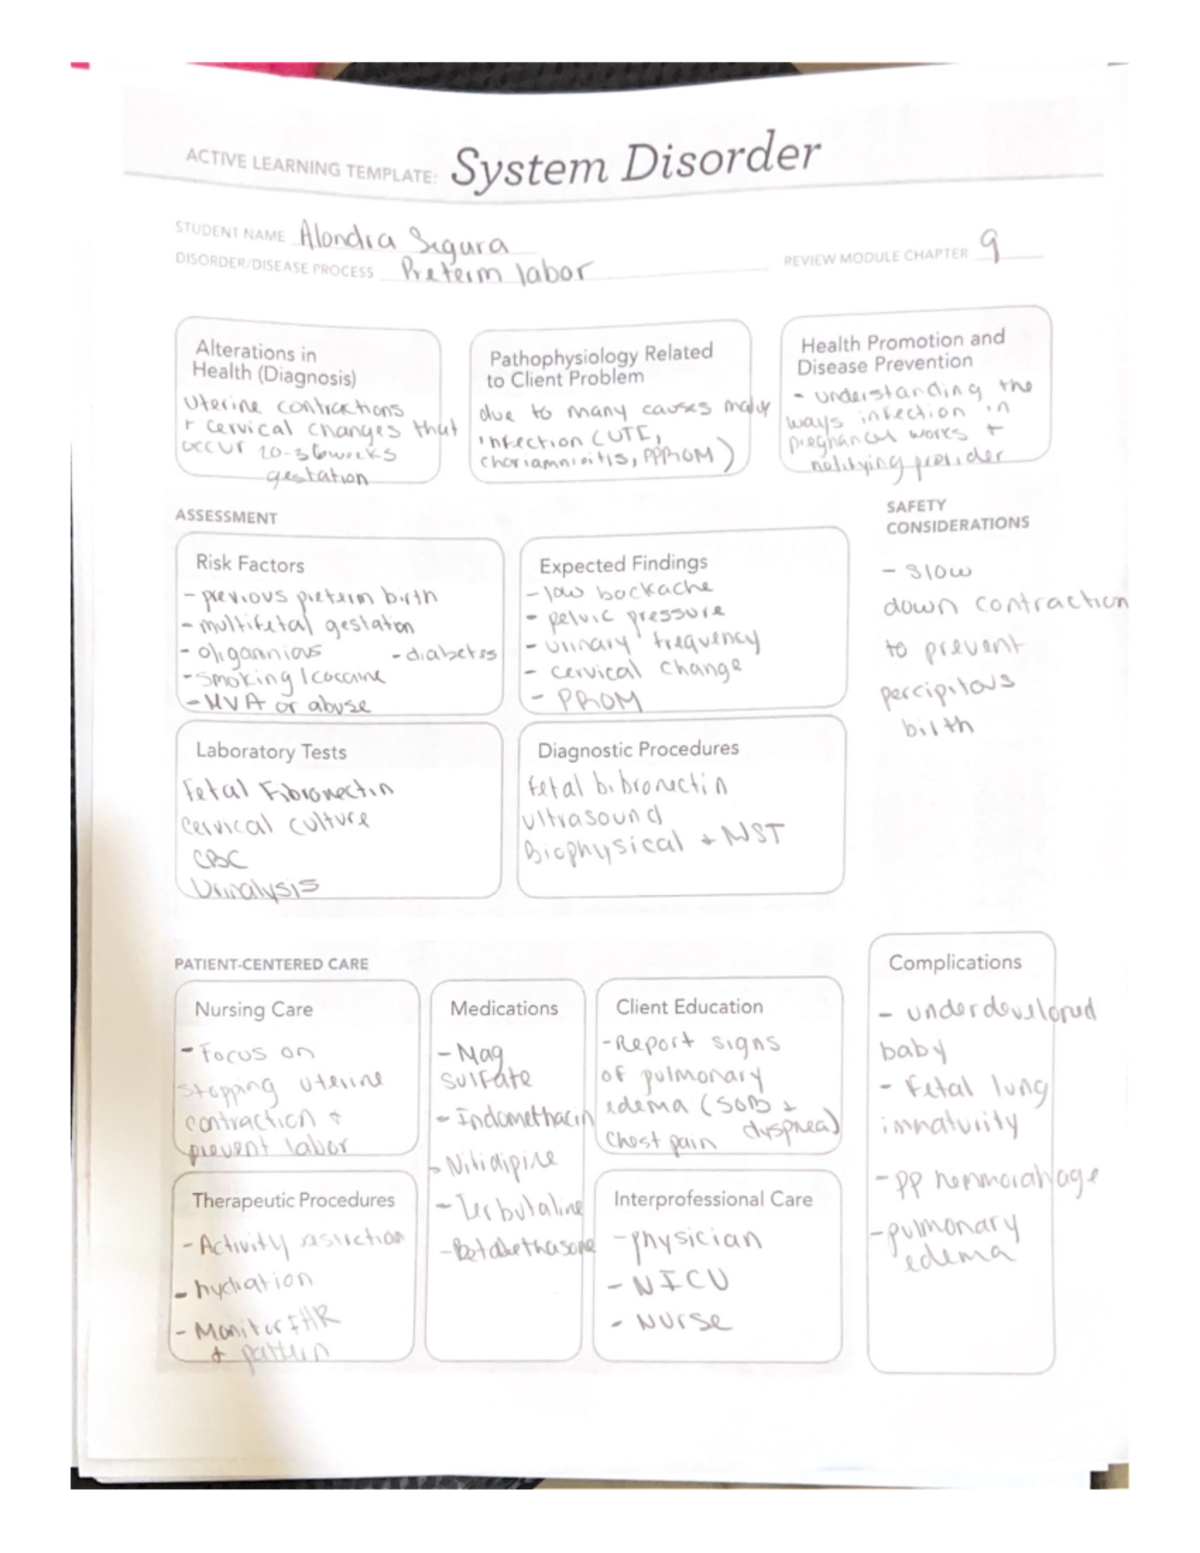 ACTIVE LEARNING TEMPLATE: System Disorder
STUDENT NAME Alondra Segura
DISORDER/DISEASE PROCESS Preterm labor
REVIEW MODULE CHAPTER 9
Alterations in
Health (Diagnosis)
Uterine contractions
+ cervical changes that
occur 20-36weeks
gestation
Pathophysiology Related
to Client Problem
due to many causes
infection (UTI,
PPROM)
Health Promotion and
Disease Prevention
- understanding the
ways infection in
works +
notifying provider
ASSESSMENT
SAFETY
CONSIDERATIONS
- Slow
down contraction
to prevent
percipitous
birth
Risk Factors
- previous preterm birth
- multifetal gestaton
- diabetes
- smoking / cocaine
- MVA or abuse
Expected Findings
- low backache
- pelvic pressure
- urinary frequency
- cervical change
- PROM
Laboratory Tests
Fetal Fibronectin
Cervical culture
CBC
Urinalysis
Diagnostic Procedures
fetal bibronectin
ultrasound
Biophysical + NST
PATIENT-CENTERED CARE
Nursing Care
- Focus on
stopping uterine
contraction +
prevent labor
Medications
- Mag
sulfate
- Indomethacin
- Terbutaline
Client Education
- Report signs
of pulmonary
edema (SOB +
dyspnea)
chest pain
Complications
- underdeveloped
baby
- Fetal lung
immaturity
- PP
- pulmonary
edema
Therapeutic Procedures
- Activity
- hydration
- Monitor FHR
+ pattern
Interprofessional Care
- physician
- NICU
- Nurse